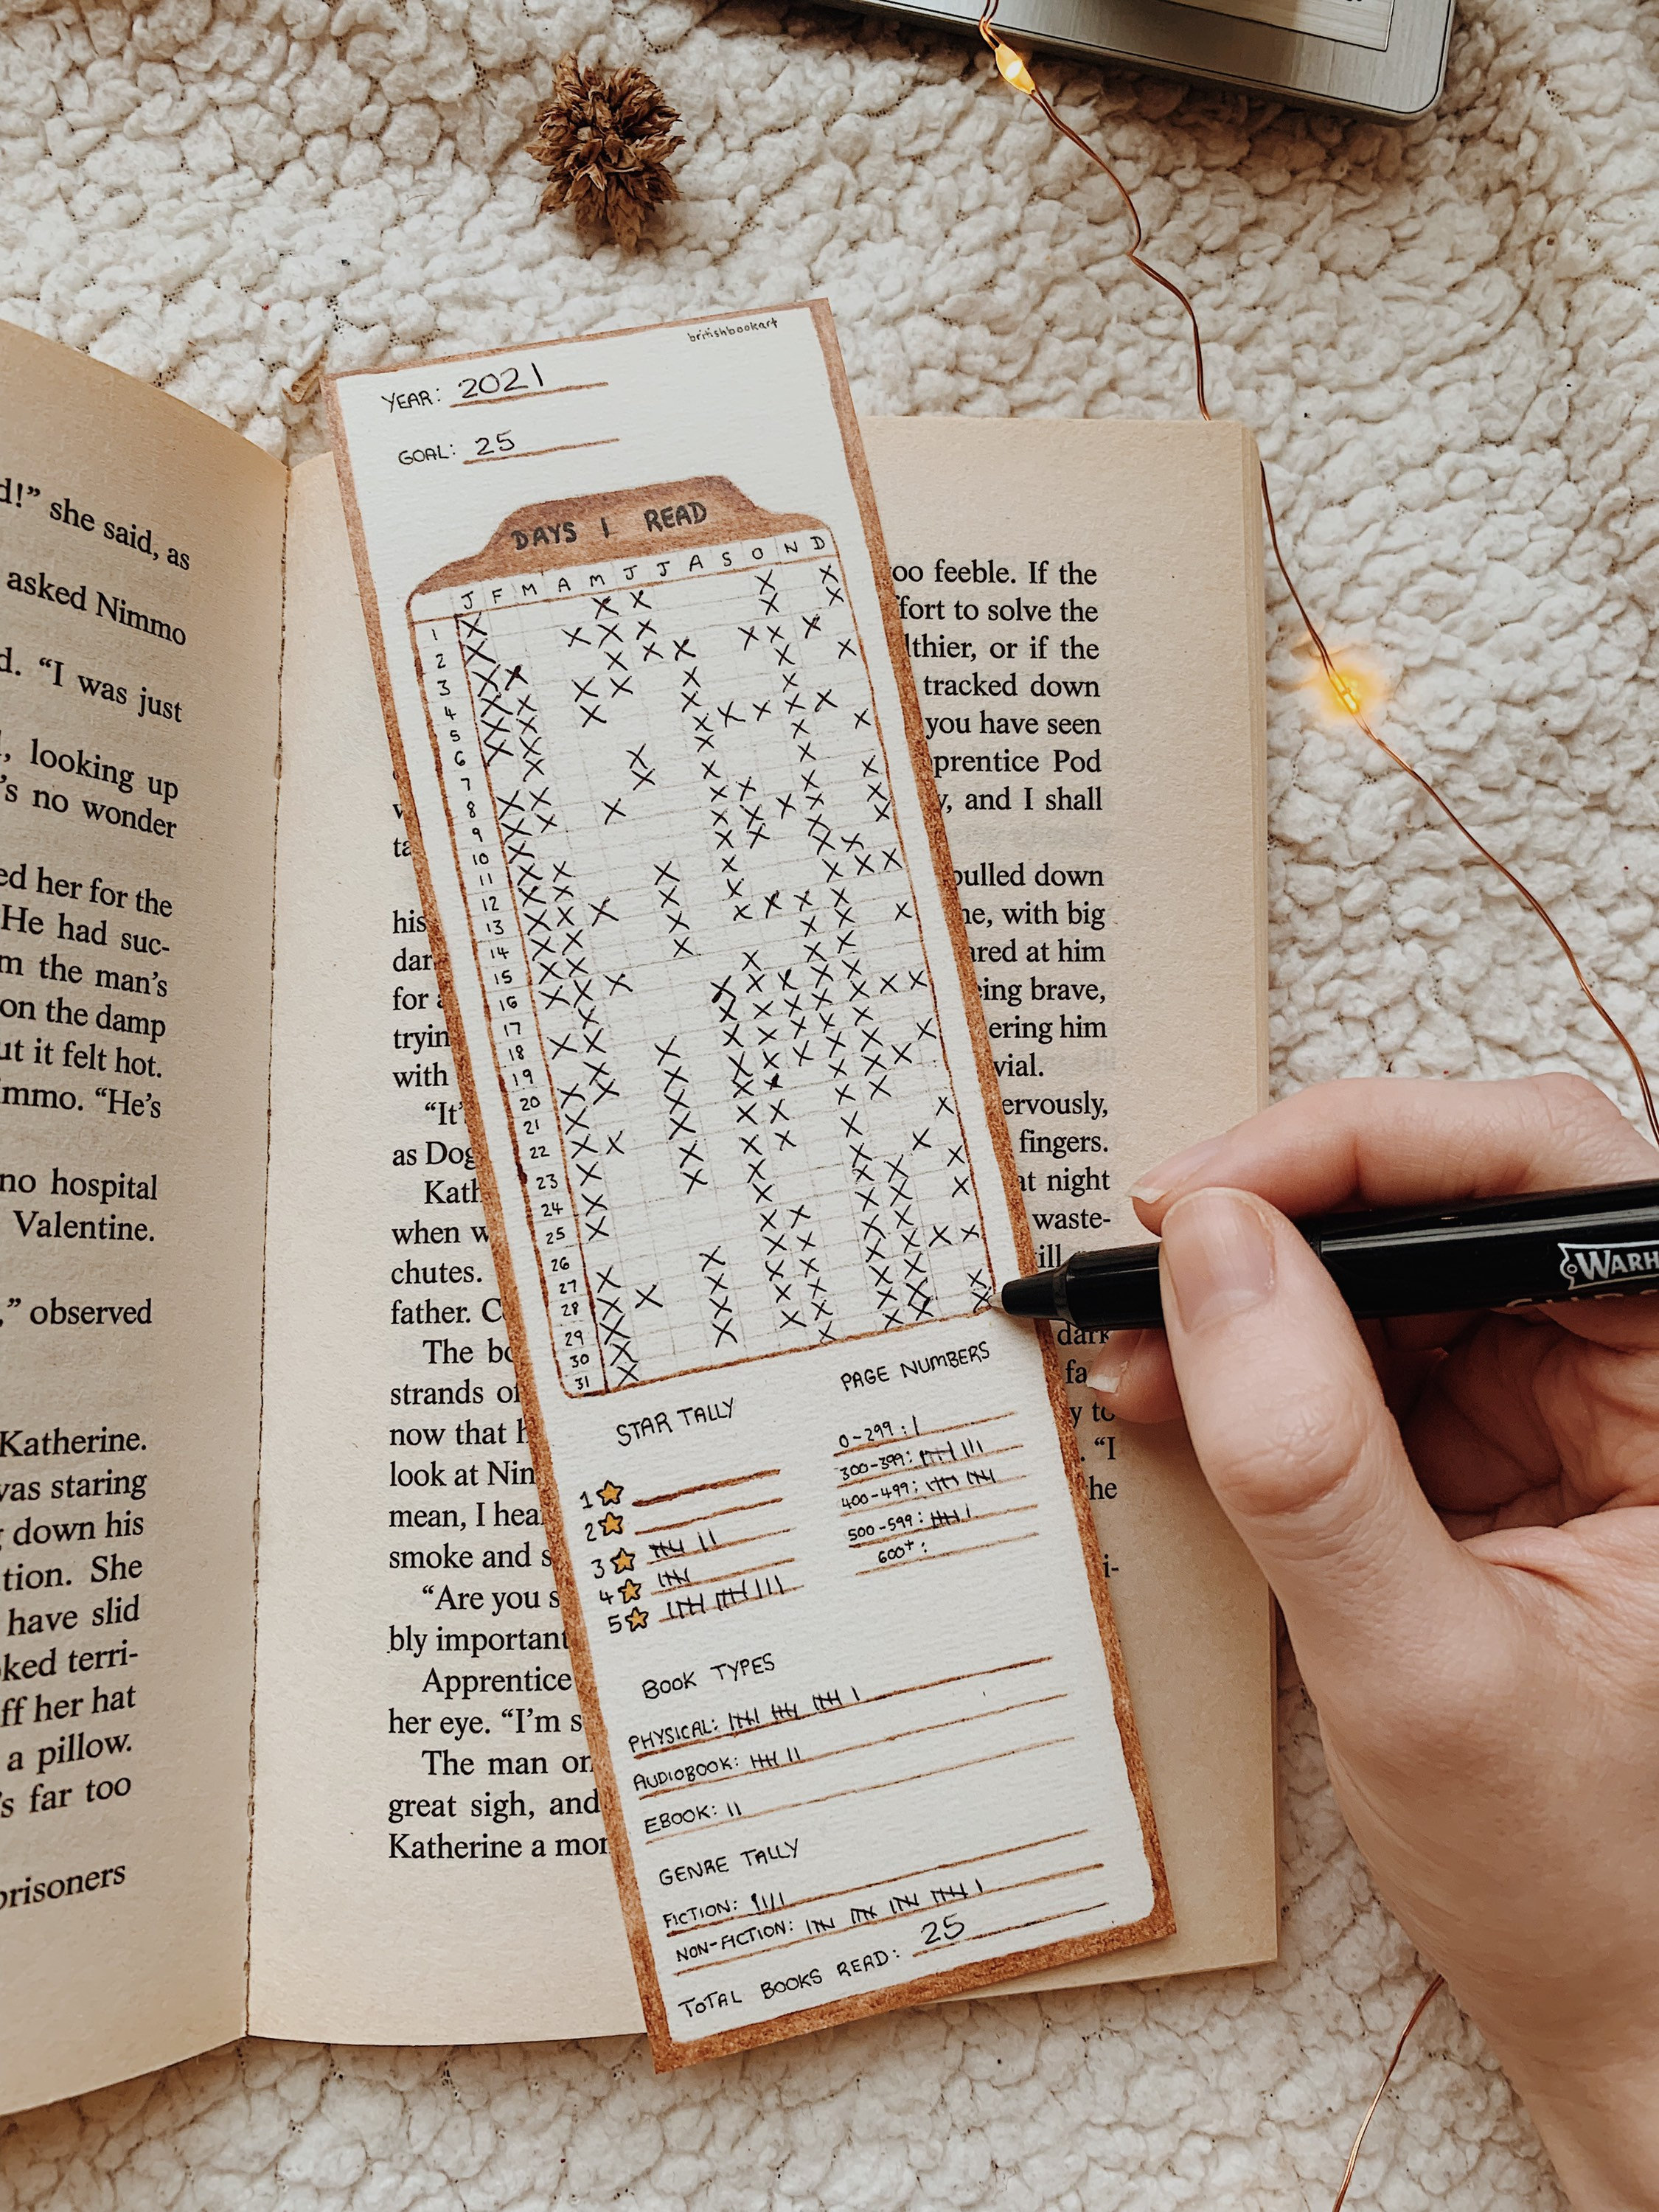 d!” she said, as
asked Nimmo
d. “I was just
, looking up
’s no wonder
ed her for the
He had suc-
m the man’s
on the damp
ut it felt hot.
immo. “He’s
no hospital
Valentine.
,” observed
Katherine.
was staring
g down his
ition. She
have slid
oked terri-
ff her hat
a pillow.
’s far too
prisoners
britishbookart
YEAR: 2021
GOAL: 25
DAYS I READ
J F M A M J J A S O N D
1
2
3
4
5
6
7
8
9
10
11
12
13
14
15
16
17
18
19
20
21
22
23
24
25
26
27
28
29
30
31
STAR TALLY
1
2
3
4
5
PAGE NUMBERS
0-299:
300-399:
400-499:
500-599:
600+:
BOOK TYPES
PHYSICAL:
AUDIOBOOK:
EBOOK:
GENRE TALLY
FICTION:
NON-FICTION:
TOTAL BOOKS READ: 25
oo feeble. If the
ffort to solve the
lthier, or if the
tracked down
you have seen
prentice Pod
y, and I shall
ta
pulled down
his ne, with big
dar ared at him
for eing brave,
tryin ering him
with vial.
“It’ ervously,
as Dog fingers.
Kath at night
when w waste-
chutes. ill
father. C
The bo dark
strands of fa
now that h y to
look at Nin . “I
mean, I hea he
smoke and s
“Are you s i-
bly important
Apprentice
her eye. “I’m s
The man on
great sigh, and
Katherine a mor
WARH